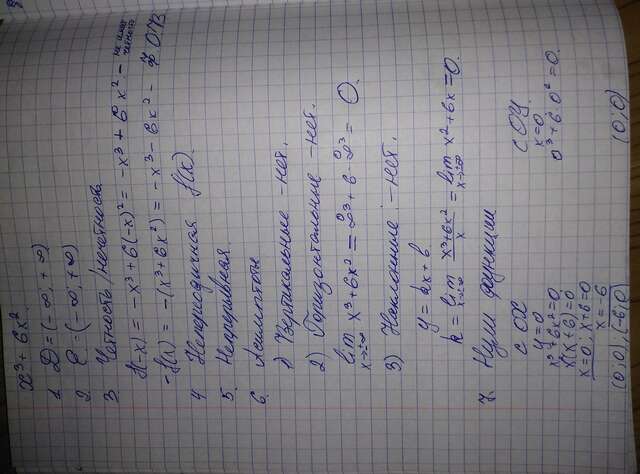 x³ + 6x².
1. D = (-∞; +∞)
2. E = (-∞; +∞)
3. Четность/нечетность
f(-x) = -x³ + 6(-x)² = -x³ + 6x² -
-f(x) = -(x³ + 6x²) = -x³ - 6x² -
4. Непериодичная f(x).
5. Непрерывная.
6. Асимптоты
1) Вертикальные - нет.
2) Горизонтальные - нет.
lim x³ + 6x² = ∞³ + 6·∞² = 0.
x→∞
3) Наклонные - нет.
y = kx + b
k = lim (x³ + 6x²)/x = lim x² + 6x = 0.
x→∞ x→∞
7. Нули функции
с OX
y = 0
x³ + 6x² = 0
x²(x + 6) = 0
x = 0; x + 6 = 0
x = -6
(0; 0), (-6; 0)
с OY
x = 0
0³ + 6·0² = 0.
(0; 0)